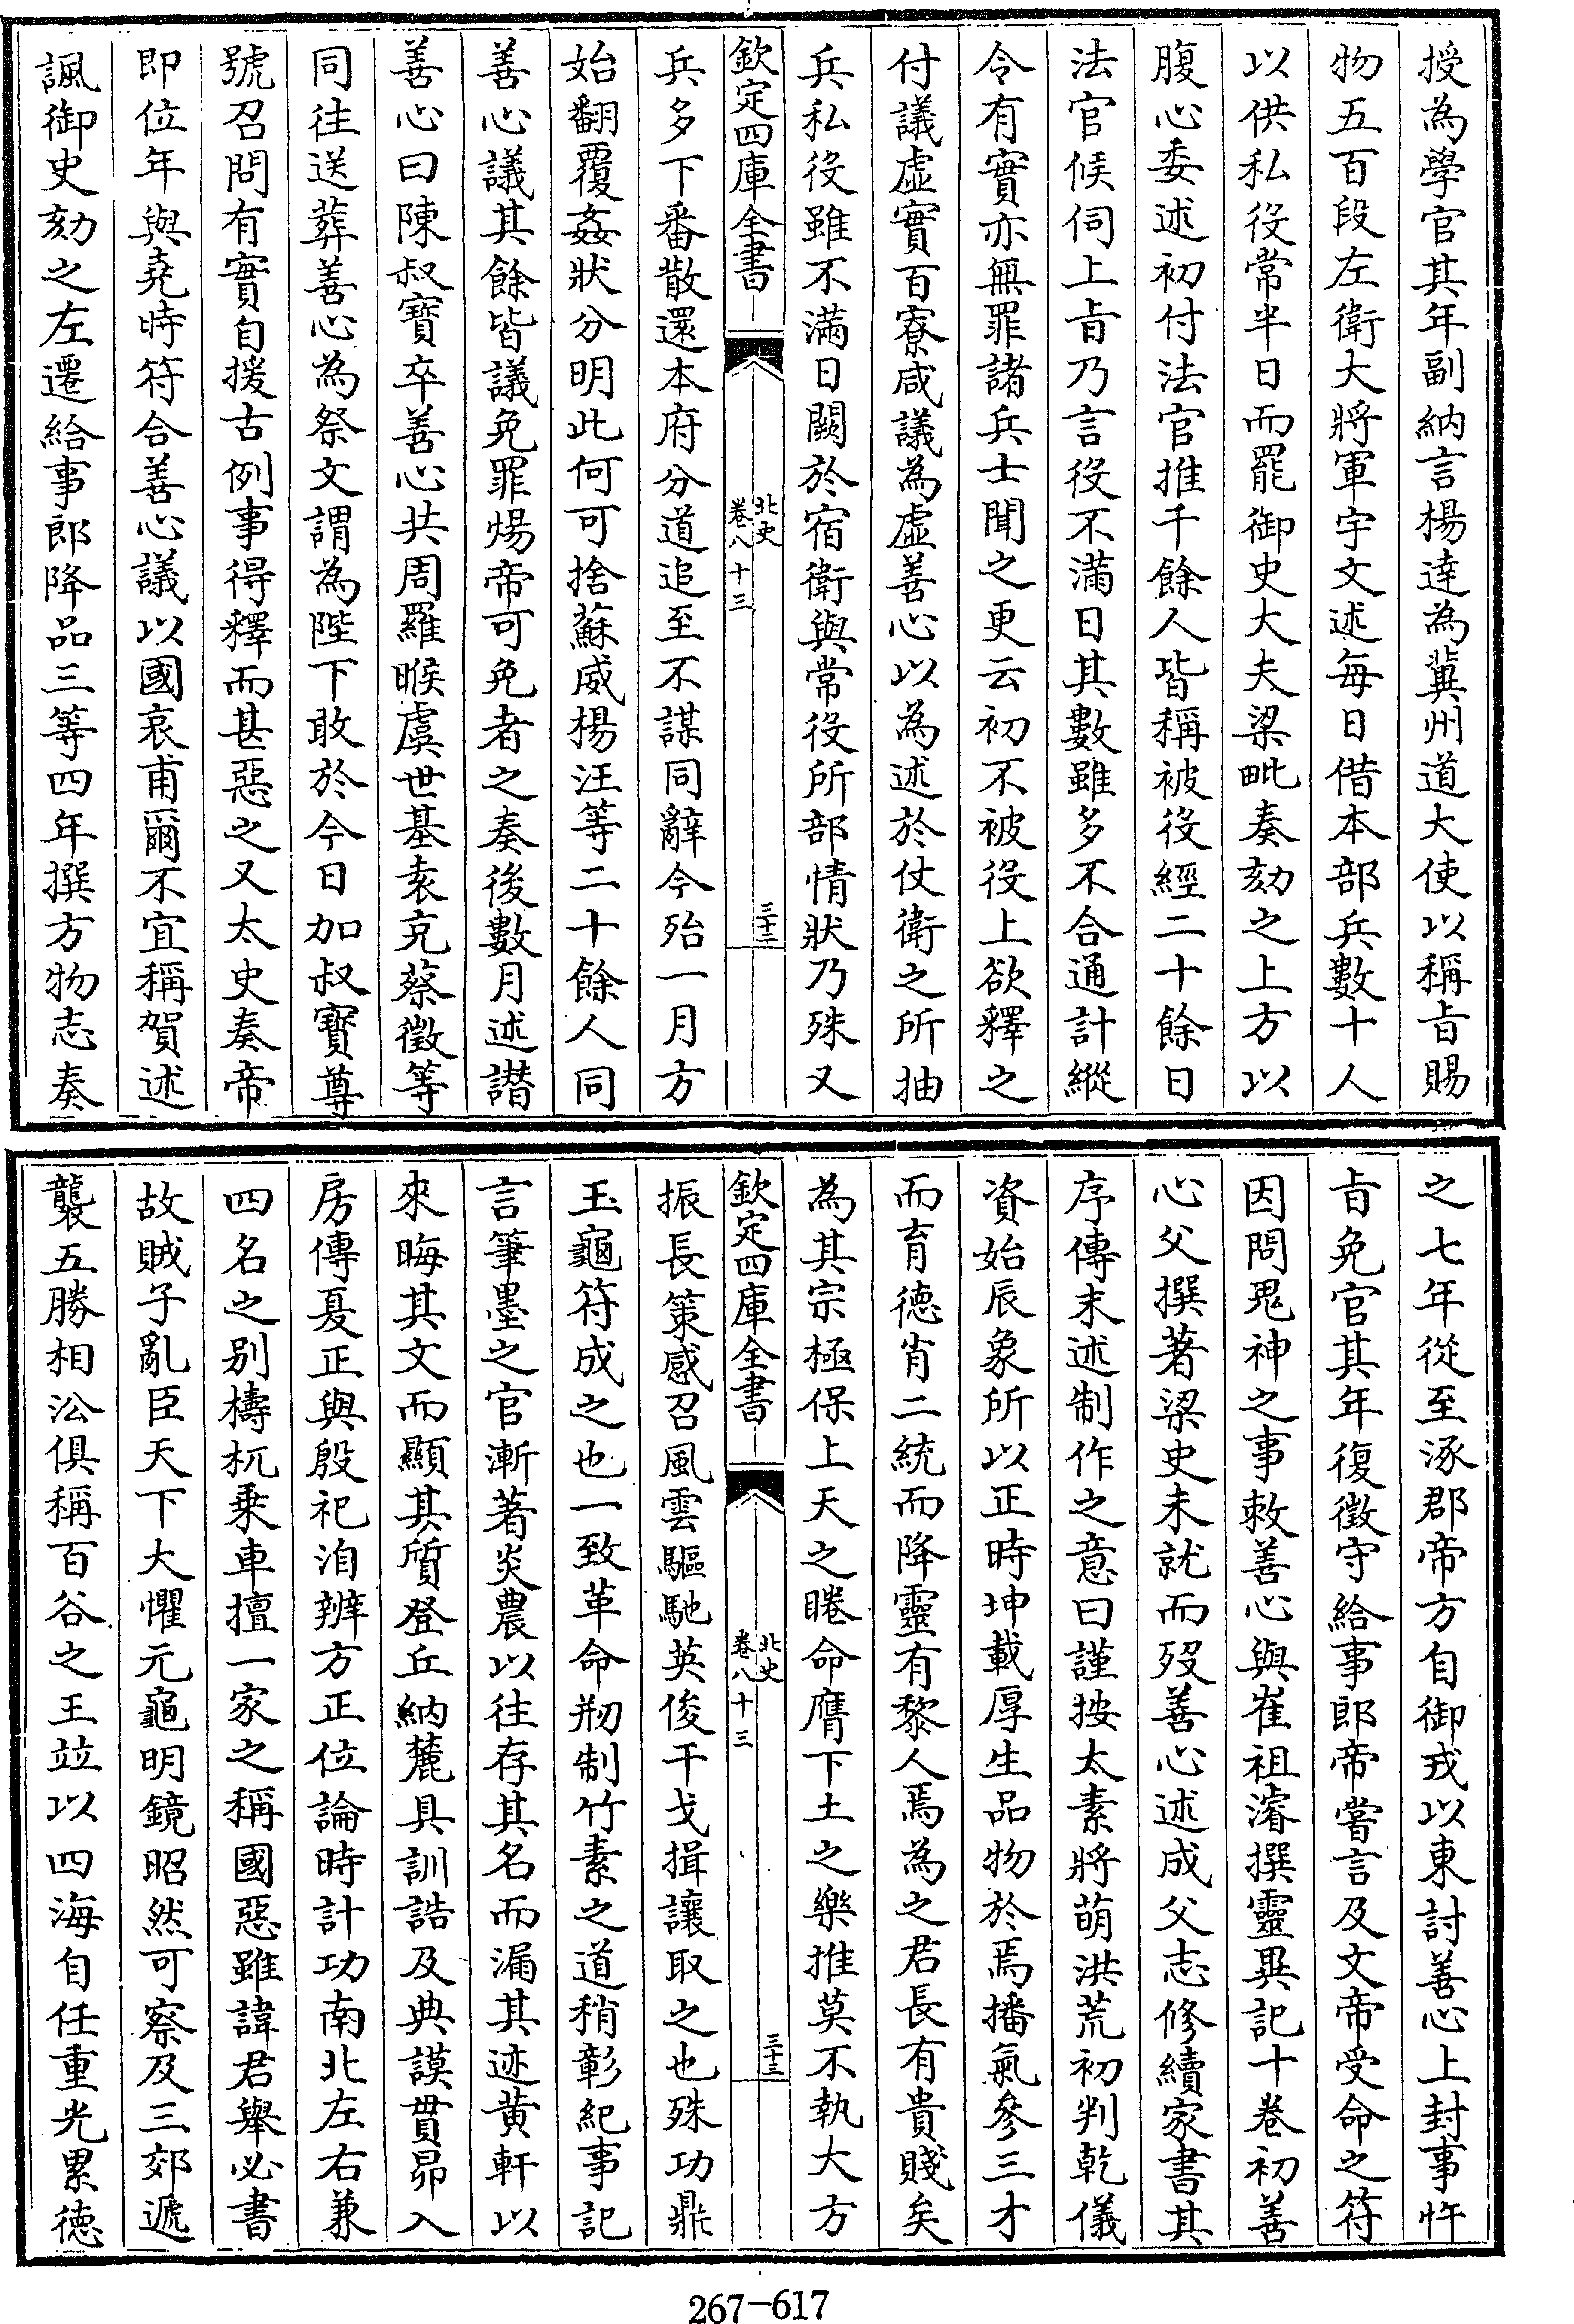 授為學官其年副納言楊達為冀州道大使以稱㫖賜
物五百段左衛大將軍宇文述每日借本部兵數十人
以供私役常半日而罷御史大夫梁毗奏劾之上方以
腹心委述初付法官推千餘人皆稱被役經二十餘日
法官候伺上㫖乃言役不滿日其數雖多不合通計縱
令有實亦無罪諸兵士聞之更云初不被役上欲釋之
付議虛實百寮咸議為虛善心以為述於仗衛之所抽
兵私役雖不滿日闕於宿衛與常役所部情狀乃殊又
欽定四庫全書
北史
卷八十三
三十二
兵多下番散還本府分道追至不謀同辭今殆一月方
始翻覆姦狀分明此何可捨蘇威楊汪等二十餘人同
善心議其餘皆議免罪煬帝可免者之奏後數月述譖
善心曰陳叔寶卒善心共周羅睺虞世基袁充蔡徵等
同往送葬善心為祭文謂為陛下敢於今日加叔寶尊
號召問有實自援古例事得釋而甚惡之又太史奏帝
即位年與堯時符合善心議以國哀甫爾不宜稱賀述
諷御史劾之左遷給事郎降品三等四年撰方物志奏
之七年從至涿郡帝方自御戎以東討善心上封事忤
㫖免官其年復徵守給事郎帝嘗言及文帝受命之符
因問鬼神之事敕善心與崔祖濬撰靈異記十卷初善
心父撰著梁史未就而歿善心述成父志修續家書其
序傳末述制作之意曰謹按太素將萌洪荒初判乾儀
資始辰象所以正時坤載厚生品物於焉播氣參三才
而育德肖二統而降靈有黎人焉為之君長有貴賤矣
為其宗極保上天之睠命膺下土之樂推莫不執大方
欽定四庫全書
北史
卷八十三
三十三
振長策感召風雲驅馳英俊干戈揖讓取之也殊功鼎
玉龜符成之也一致革命剏制竹素之道稍彰紀事記
言筆墨之官漸著炎農以往存其名而漏其迹黄軒以
來晦其文而顯其質登丘納麓具訓誥及典謨貫昴入
房傳夏正與殷祀洎辨方正位論時計功南北左右兼
四名之别檮杌乗車擅一家之稱國惡雖諱君舉必書
故賊子亂臣天下大懼元龜明鏡昭然可察及三郊遞
襲五勝相沿俱稱百谷之王竝以四海自任重光累德
267-617